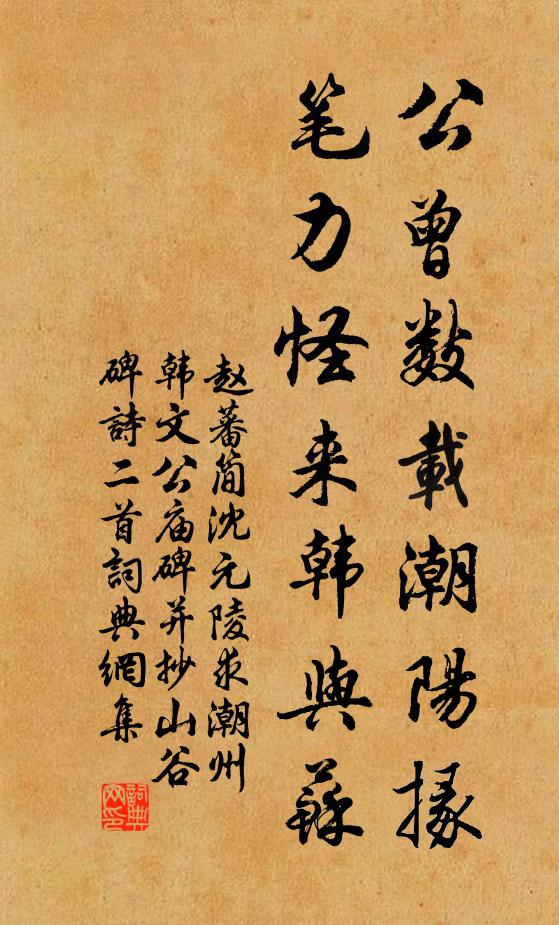 公曾数載潮陽掾
笔力怪来韩與蘇
赵蕃简沈元陵求潮州
韩文公庙碑并抄山谷
碑詩二首詞典網集
詞典网印